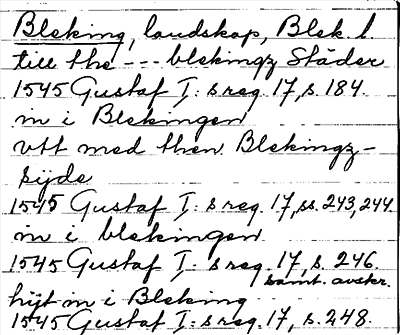 Bleking, landskap, Blek. l
till the --- blekingz Städer
1545 Gustaf I:s reg. 17, s. 184.
in i Blekingen
vtt med then Blekingz-
sijde
1545 Gustaf I:s reg. 17, ss. 243, 244
in i blekingen
1545 Gustaf I:s reg. 17, s. 246.
samt. avskr.
hijt in i Bleking
1545 Gustaf I:s reg. 17, s. 248.